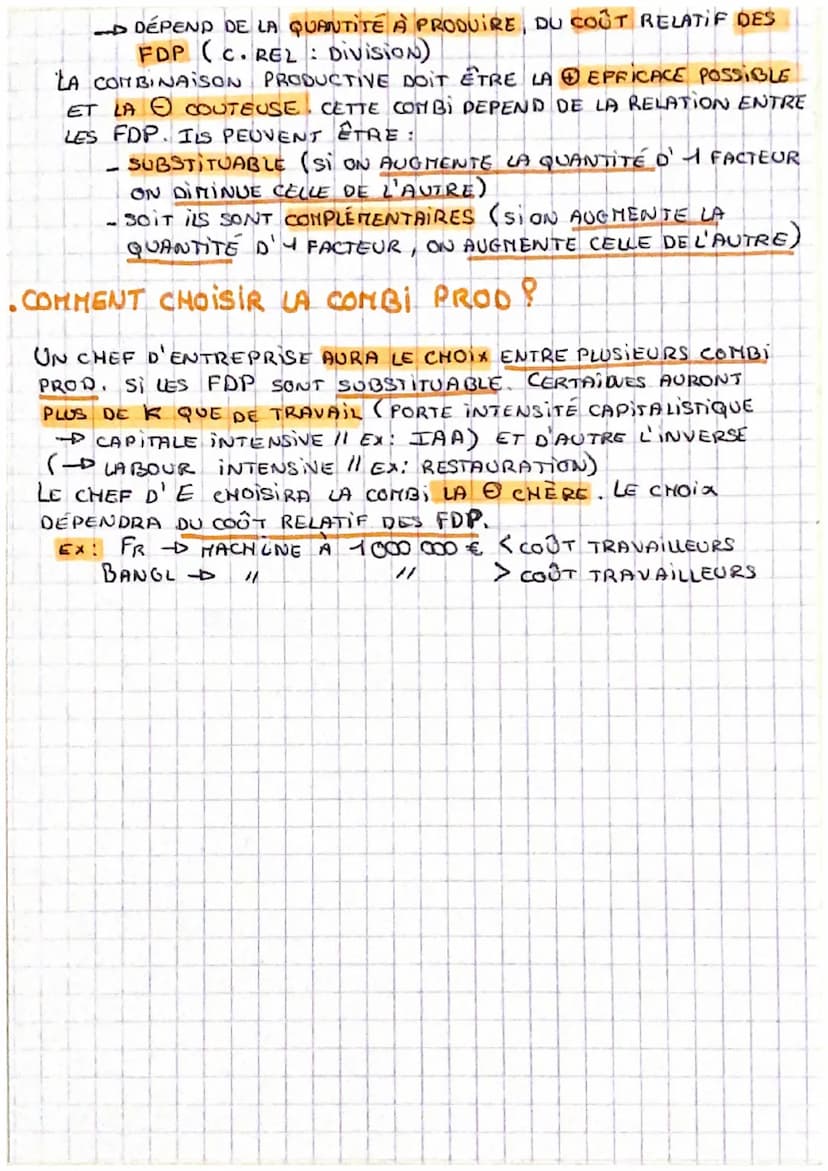 → DÉPEND DE LA QUANTITÉ À PRODUIRE, DU COÛT RELATIF DES
FDP (C. REL : DIVISION)
LA COMBINAISON PRODUCTIVE DOIT ÊTRE LA ⊕ EFFICACE POSSIBLE
ET LA ⊖ COUTEUSE. CETTE COMBI DEPEND DE LA RELATION ENTRE
LES FDP. ILS PEUVENT ÊTRE :
- SUBSTITUABLE (SI ON AUGMENTE LA QUANTITÉ D' 1 FACTEUR
ON DIMINUE CELLE DE L'AUTRE)
- SOIT ILS SONT COMPLÉMENTAIRES (SI ON AUGMENTE LA
QUANTITÉ D'1 FACTEUR, ON AUGMENTE CELLE DE L'AUTRE)
. COMMENT CHOISIR LA COMBI PROD ?
UN CHEF D'ENTREPRISE AURA LE CHOIX ENTRE PLUSIEURS COMBI
PROD. SI LES FDP SONT SUBSTITUABLE. CERTAINES AURONT
PLUS DE K QUE DE TRAVAIL (PORTE INTENSITÉ CAPITALISTIQUE
→ CAPITALE INTENSIVE // EX : IAA) ET D'AUTRE L'INVERSE
(→ LABOUR INTENSIVE // EX : RESTAURATION)
LE CHEF D'E CHOISIRA LA COMBI LA ⊖ CHÈRE. LE CHOIX
DÉPENDRA DU COÛT RELATIF DES FDP.
EX : FR → MACHINE À 1 000 000 € < COÛT TRAVAILLEURS
BANGL → // // > COÛT TRAVAILLEURS